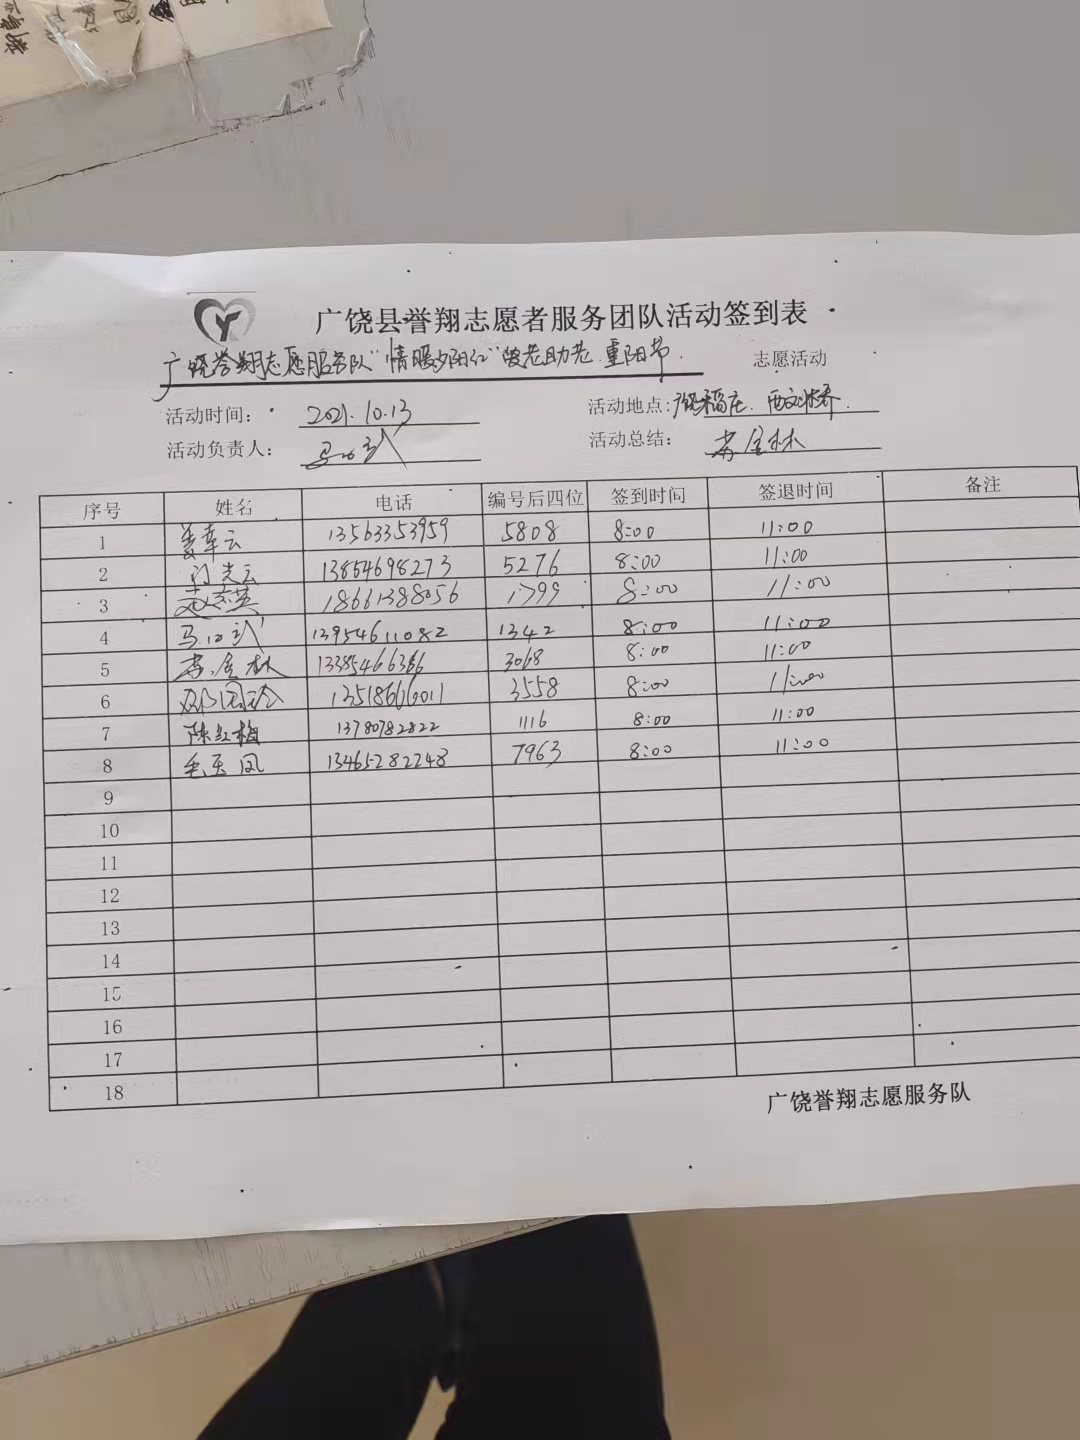 广饶县誉翔志愿者服务团队活动签到表
广饶誉翔志愿服务队"情暖夕阳红"爱老助老 重阳节 志愿活动
活动时间： 2021.10.13 活动地点：广饶稻庄
活动负责人： 活动总结： 李金林
序号 姓名 电话 编号后四位 签到时间 签退时间 备注
1 姜幸云 13563353959 5808 8:00 11:00
2 13854698273 5276 8:00 11:00
3 赵杰英 18661388056 1799 8:00 11:00
4 13954611082 1342 8:00 11:00
5 李金林 13385466366 3068 8:00 11:00
6 3558 8:00 11:00
7 陈红梅 13780782822 1116 8:00 11:00
8 毛玉凤 13465282248 7963 8:00 11:00
9
10
11
12
13
14
15
16
17
18
广饶誉翔志愿服务队